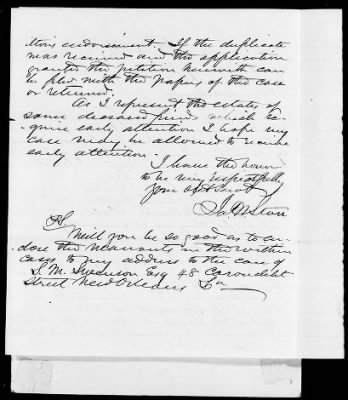 tions endorsement. If the duplicate
was received and the application
granted the petition herewith can
be filed with the papers of the case
or returned.
As I represent the estates of
some deceased friends which re-
quire early attention I hope my
case may be allowed to receive
early attention.
I have the honor
to be very respectfully
Your obt Servt
Ja
PS
Will you be so good as to en-
close the warrants in the within
cases to my address to the care of
S. M. Swenson Esq 48 Carondelet
Street New Orleans La